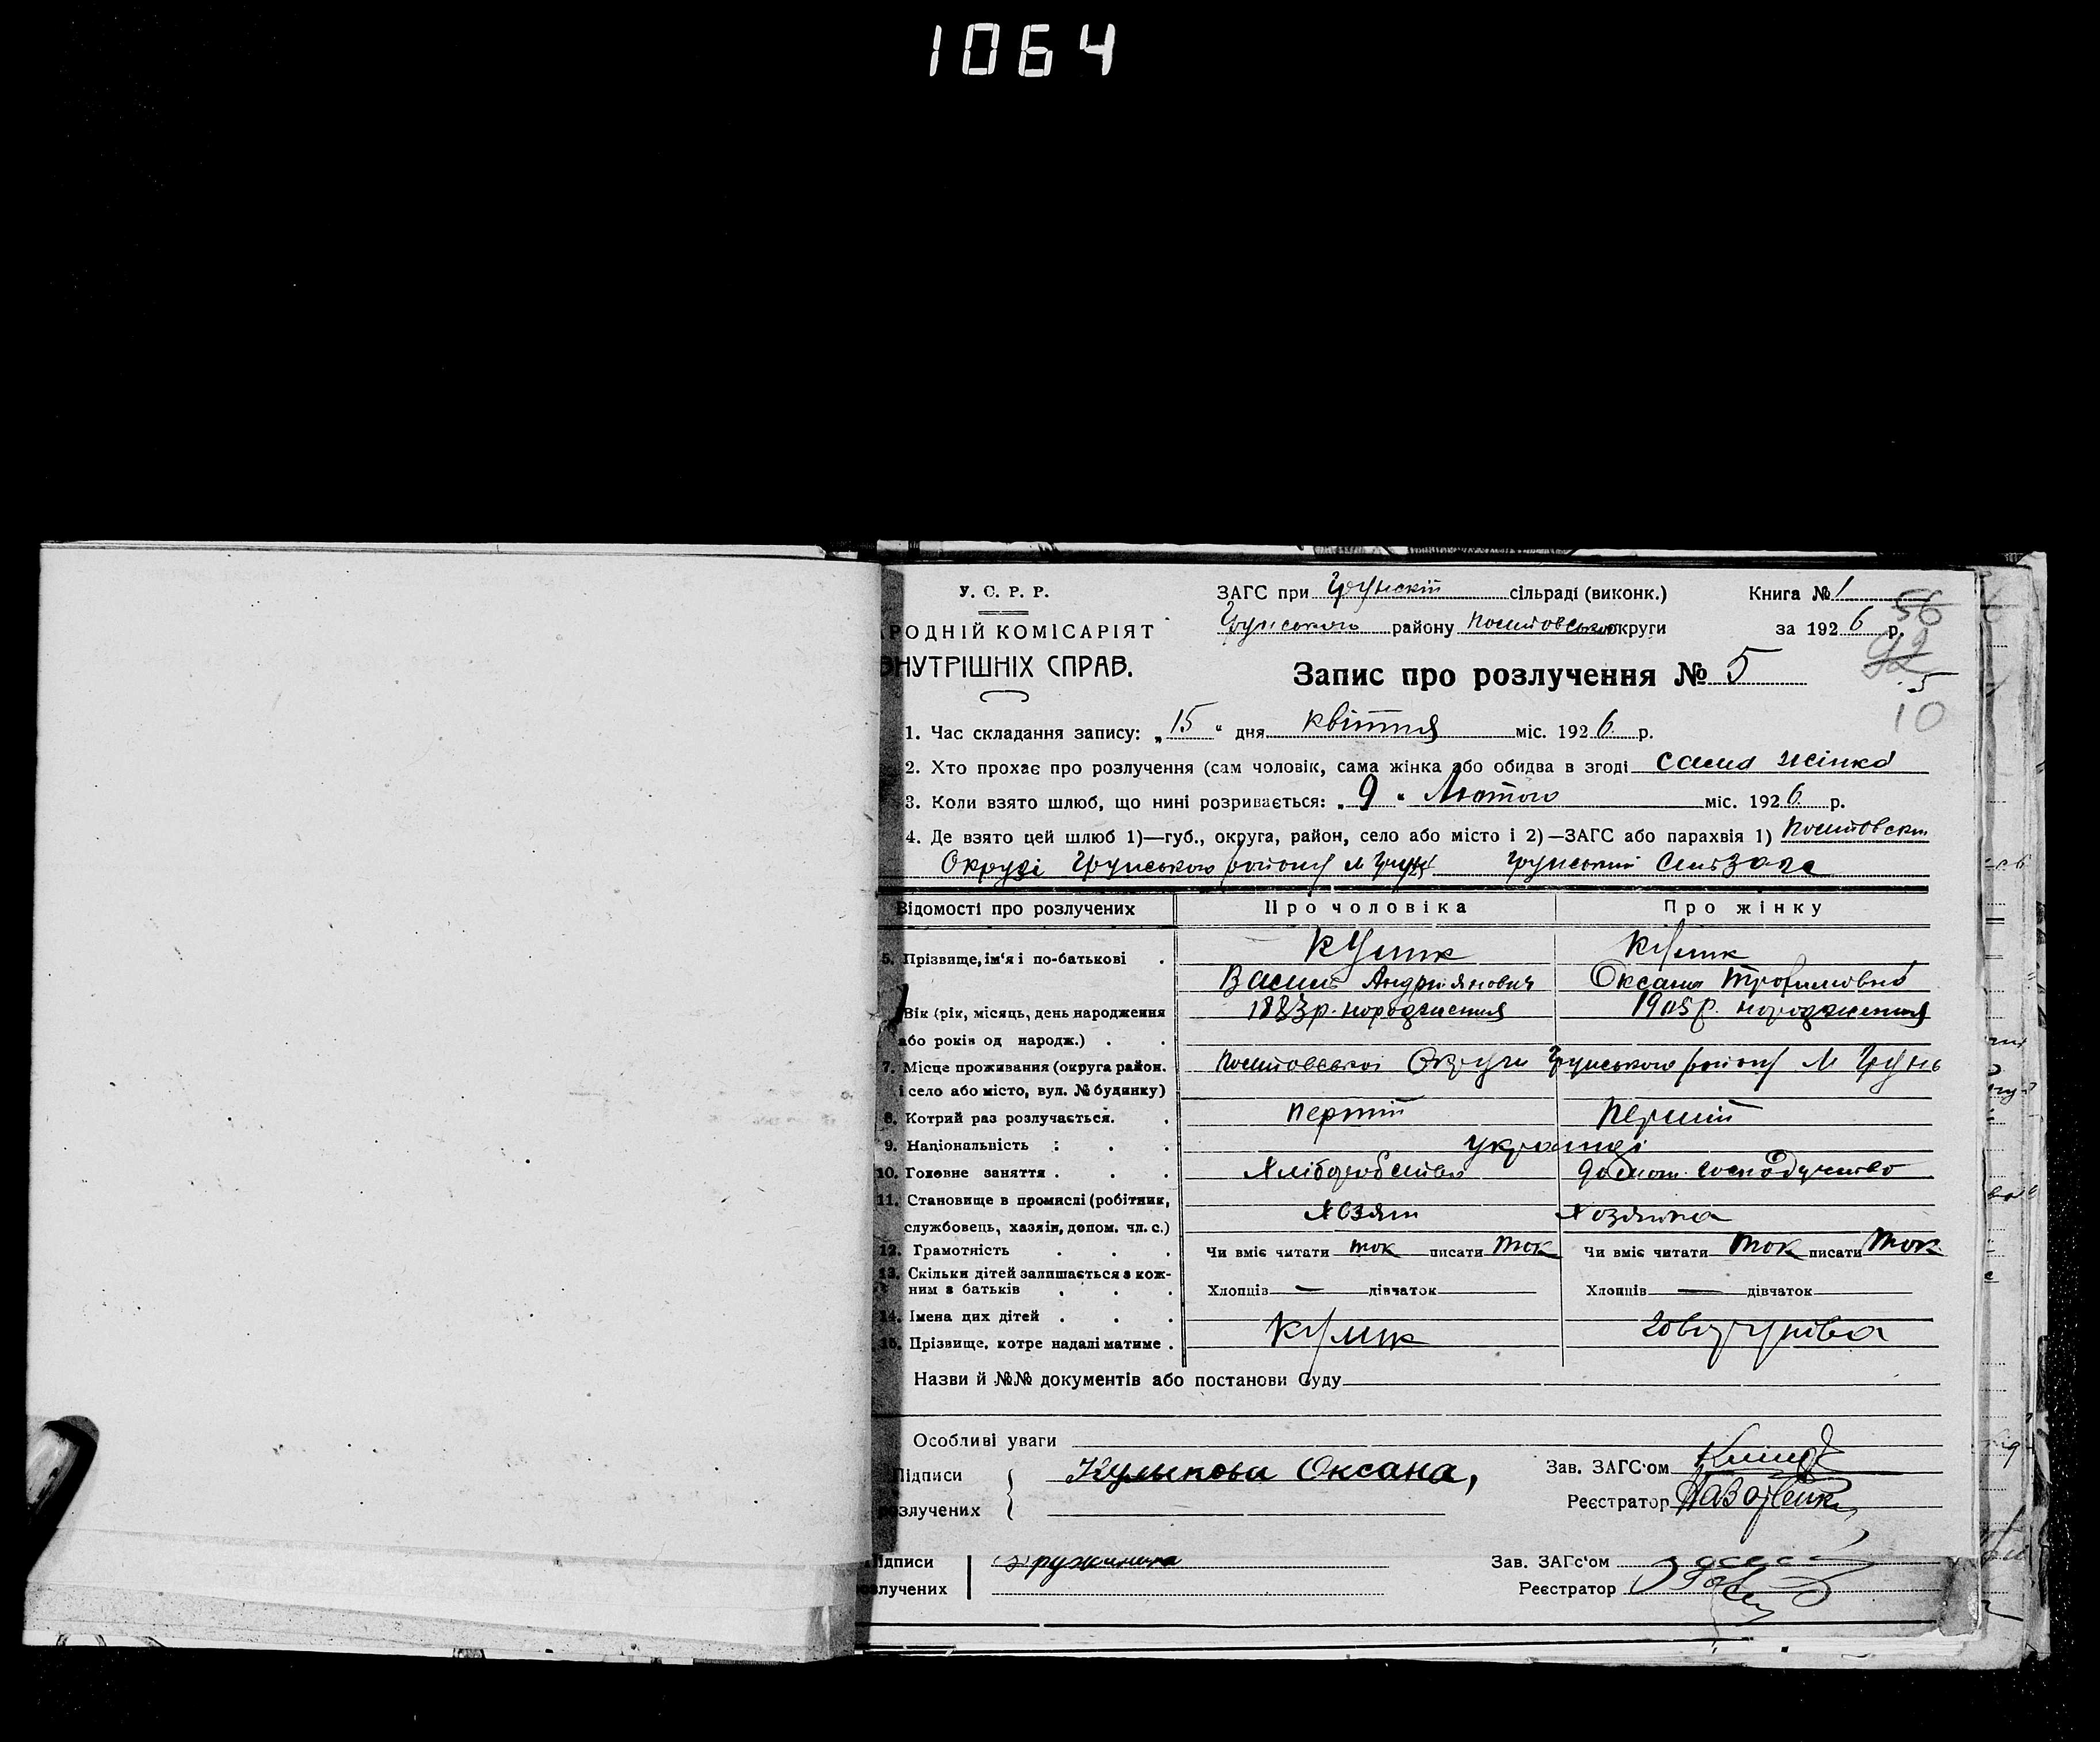 1064
У. С. Р. Р.
РОДНІЙ КОМІСАРІЯТ
ВНУТРІШНІХ СПРАВ.
ЗАГС при Грунскій сільраді (виконк.)
Грунського району округи
Книга № 1
за 192 6 р.
56
92
5
10
Запис про розлучення № 5
1. Час складання запису: „ 15 “ дня квітня міс. 192 6 р.
2. Хто прохає про розлучення (сам чоловік, сама жінка або обидва в згоді сама жінка
3. Коли взято шлюб, що нині розривається: „ 9 “ Лютого міс. 192 6 р.
4. Де взято цей шлюб 1)—губ., округа, район, село або місто і 2)—ЗАГС або парахвія 1)
Округі Грунського району м Груні Грунський Сельзагс
Відомості про розлучених Про чоловіка Про жінку
5. Прізвище, ім'я і по-батькові . Кулик Кулик
Василь Андріянович Оксана Трофимовна
Вік (рік, місяць, день народження 1883р. народження 1905р. народження
або років од народж.) . .
7. Місце проживання (округа район. Округи Грунського району М Грунь
і село або місто, вул. № будинку)
8. Котрий раз розлучається. . перший перший
9. Національність : . . українці
10. Головне заняття . . . Хліборобство господарство
11. Становище в промислі (робітник, Хозяїн Хозяйка
службовець, хазяїн, допом. чл. с.)
12. Грамотність . . . Чи вміє читати так писати так Чи вміє читати так писати так
13. Скільки дітей залишається з кож-
ним з батьків . . . Хлопців — дівчаток Хлопців — дівчаток
14. Імена цих дітей . . .
15. Прізвище, котре надалі матиме . Кулик
Назви й №№ документів або постанови Суду
Особливі уваги
Підписи Кулыкова Оксана,
розлучених
Зав. ЗАГС'ом
Реєстратор
Підписи
злучених
Зав. ЗАГс'ом
Реєстратор